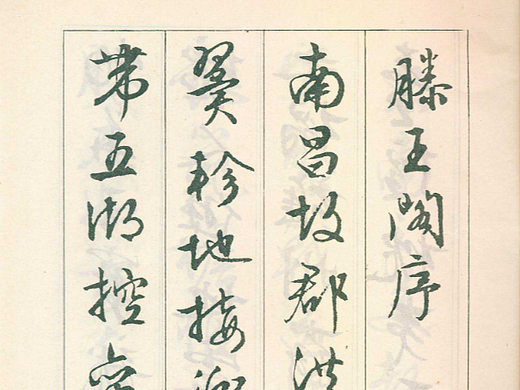 滕王閣序
南昌故郡洪
翼軫地接
帶五湖控